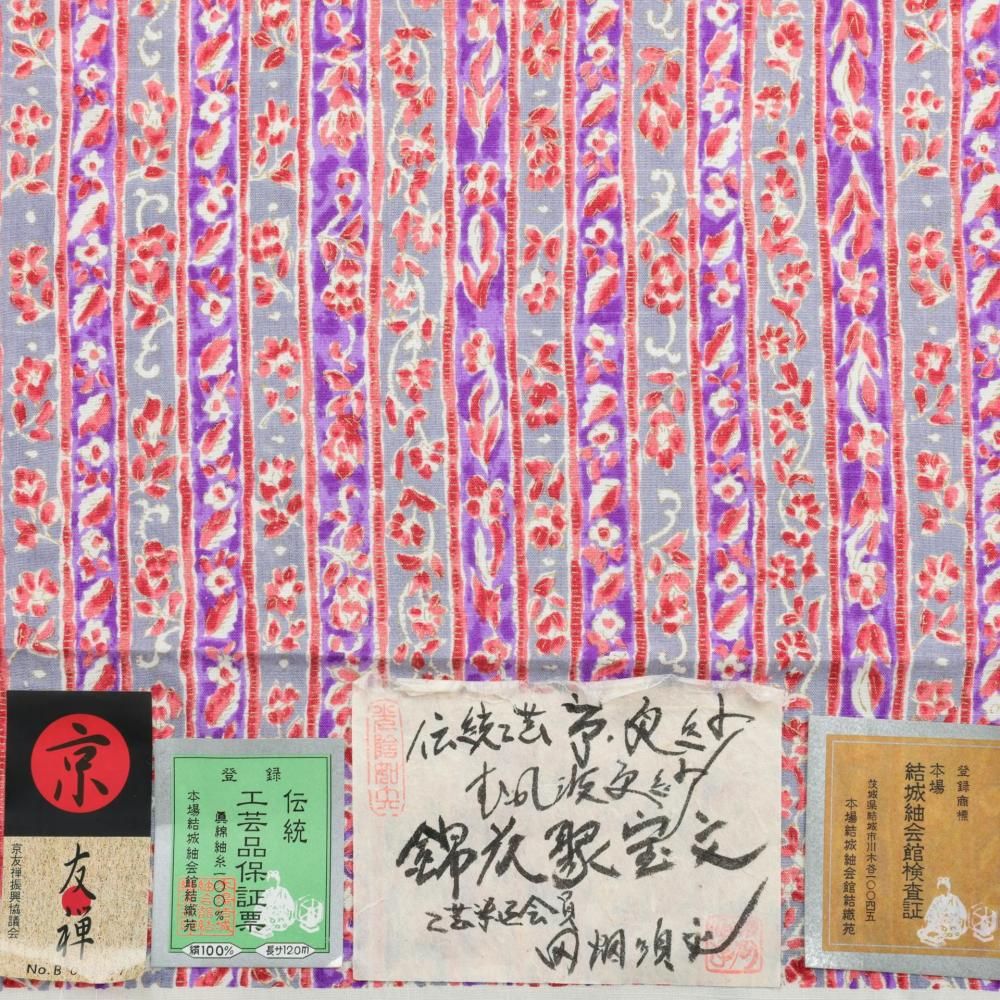 京
友禅
京友禅振興協議会
No.B
登録
伝統
工芸品保証票
眞綿紬糸一〇〇%
本場結城紬会館結織苑
絹100%
長サ12.0m
伝統工芸 京更紗
更紗
錦 聚宝文
工芸 会員
田畑
登録商標
本場
結城紬会館検査証
茨城県結城市川木谷一〇〇四五
本場結城紬会館結織苑